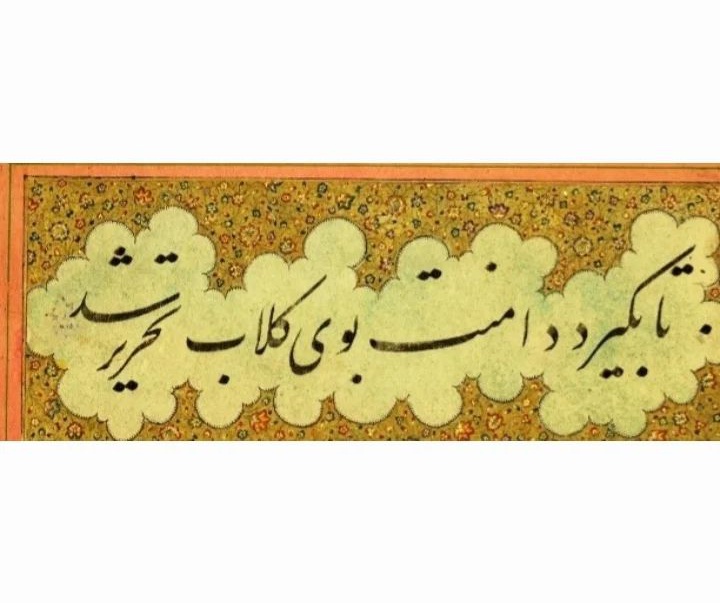 تا بگیرد دامنت بوی کلاب تحریر شد